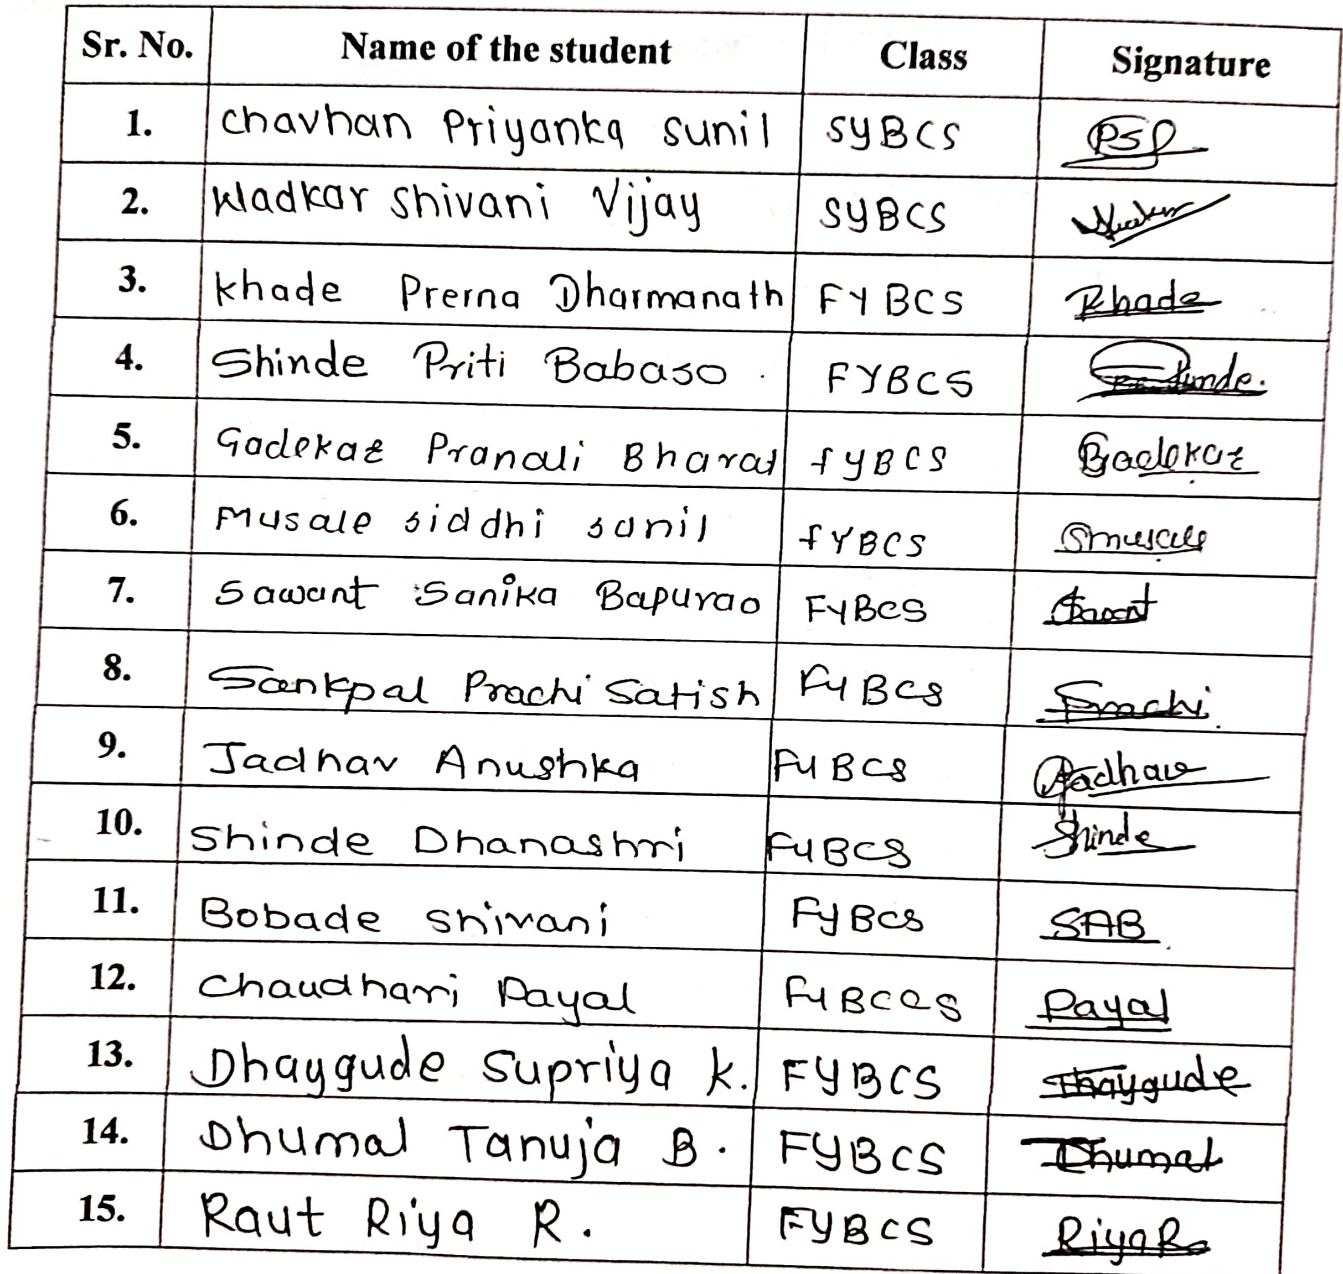 Sr. No. Name of the student Class Signature
1. Chavhan Priyanka Sunil SYBCS PSP
2. Wadkar Shivani Vijay SYBCS
3. Khade Prerna Dharmanath FYBCS Khade
4. Shinde Priti Babaso. FYBCS Shinde.
5. Gadekar Pranali Bharat fyBCS Gadekar
6. Musale siddhi sunil fYBCS Smusale
7. Sawant Sanika Bapurao FYBCS Sawant
8. Sankpal Prachi Satish FYBCS Prachi.
9. Jadhav Anushka FYBCS Jadhav
10. Shinde Dhanashri FYBCS Shinde
11. Bobade Shivani FYBCS SAB
12. Chaudhari Payal Payal
13. Dhaygude Supriya K. FYBCS Dhaygude
14. Dhumal Tanuja B. FYBCS Dhumal
15. Raut Riya R. FYBCS RiyaR